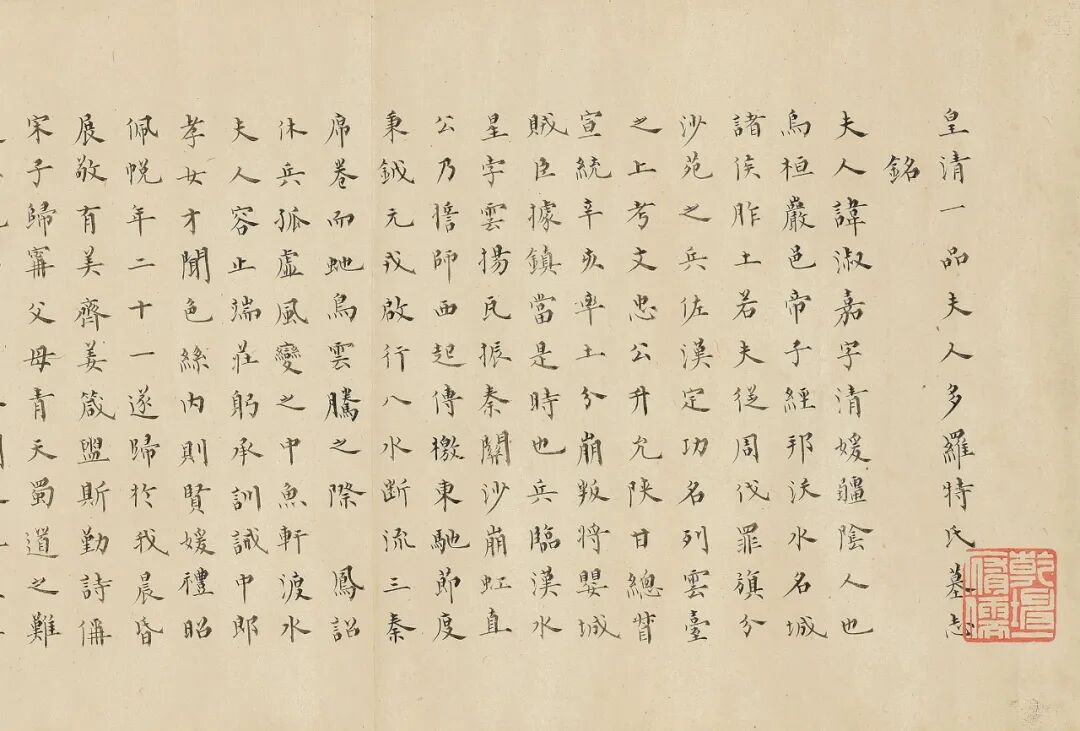 皇清一品夫人多羅特氏墓志
銘
夫人諱淑嘉字清媛疆陰人也
烏桓嚴邑帝子經邦沃水名城
諸侯胙土若夫從周伐罪旗分
沙苑之兵佐漢定功名列雲臺
之上考文忠公升允陝甘總督
宣統辛亥率土分崩叛將嬰城
賊臣據鎮當是時也兵臨漢水
星字雲揚瓦振秦關沙崩虹直
公乃擔師西起傳檄東馳節度
秉鉞元戎啟行八水斷流三秦
席卷而虵鳥雲騰之際 鳳詔
休兵孤虛風變之中魚軒渡水
夫人容止端莊躬承訓誡中郎
孝女才聞色絲內則賢媛禮昭
佩帨年二十一遂歸於我晨昏
展敬有美齊姜箴盥斯勤詩偁
宋子歸甯父母青天蜀道之難
乾坤一腐儒